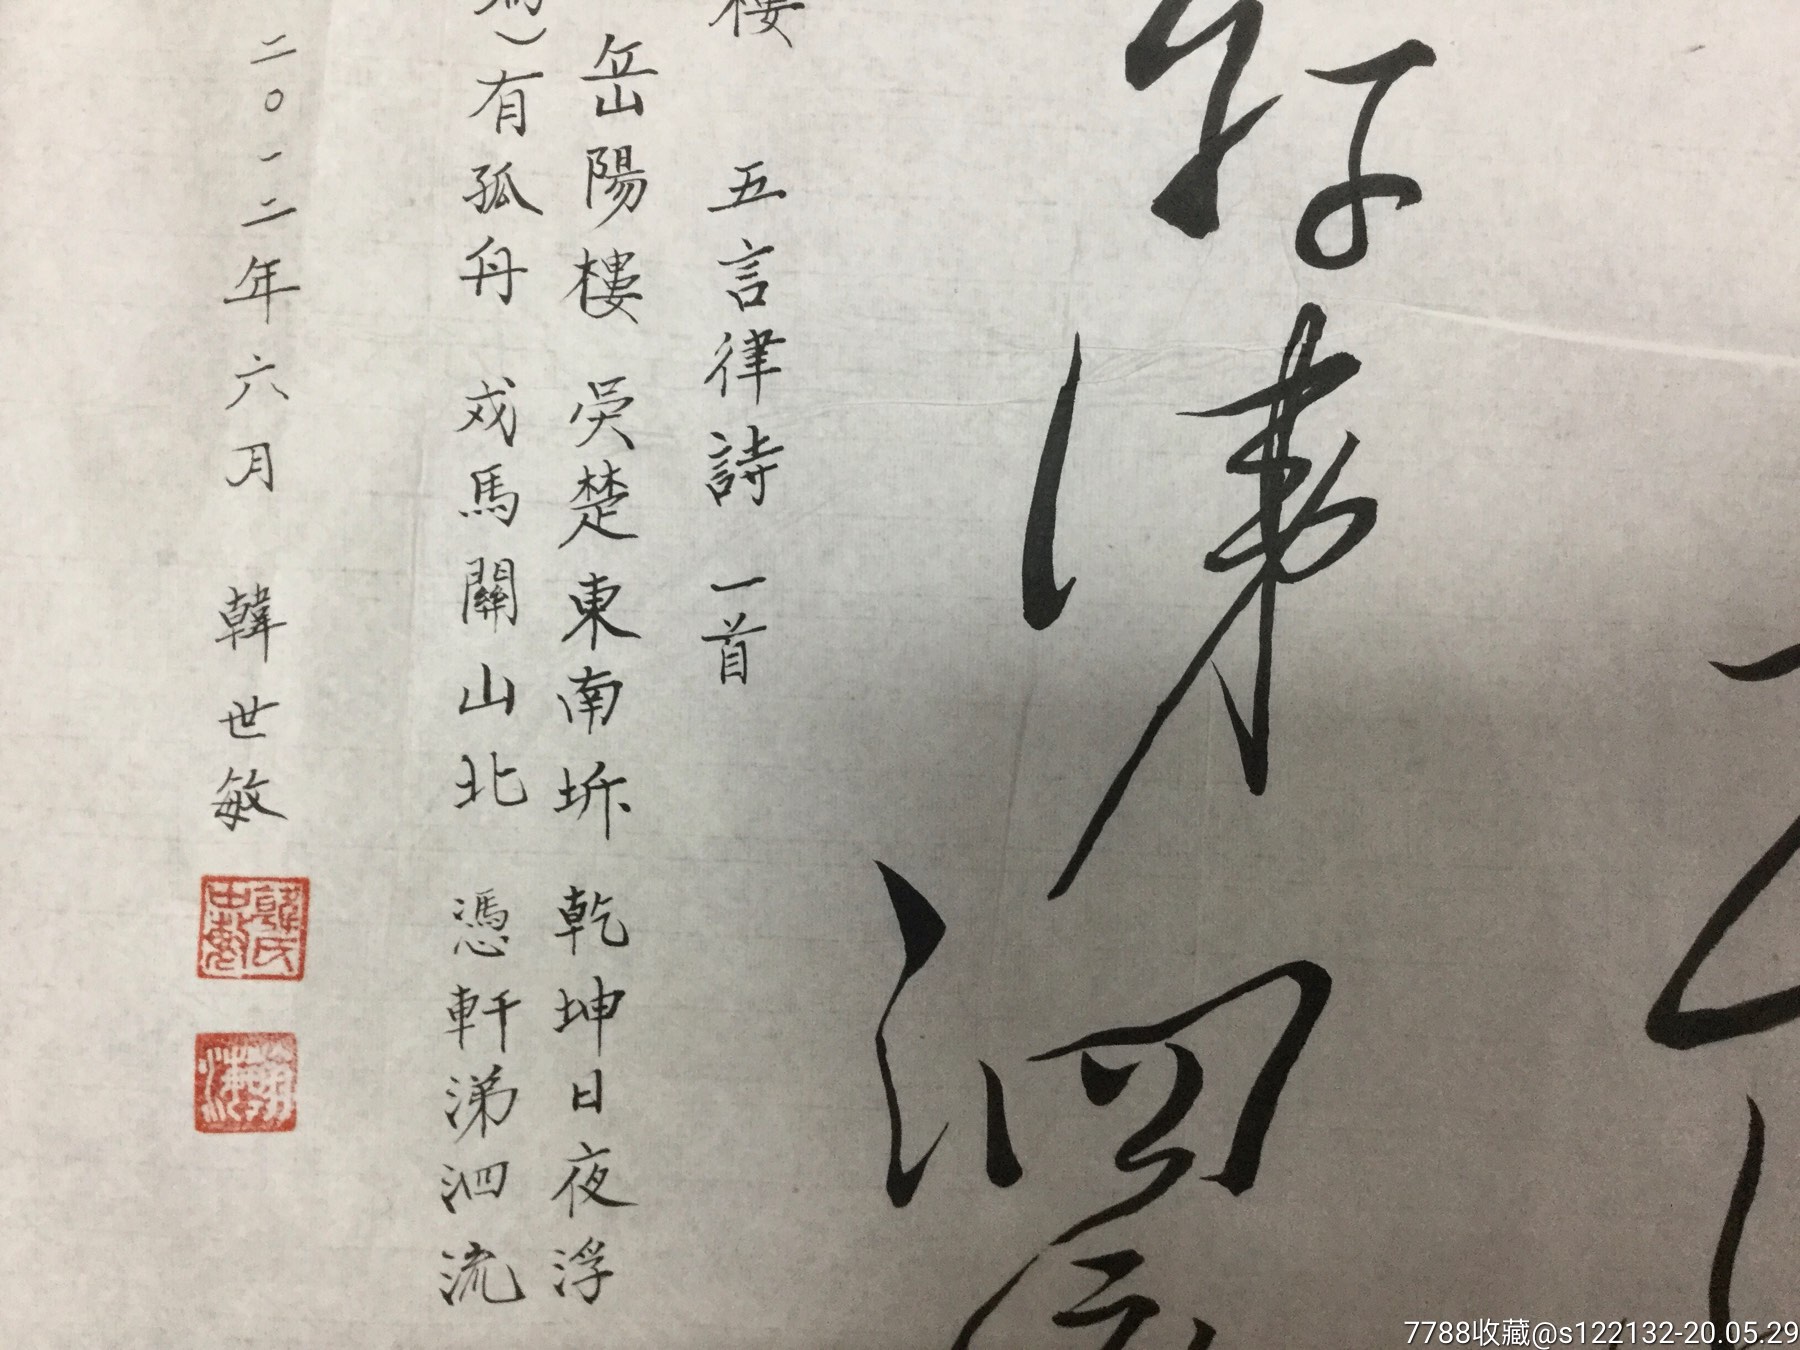 軒涕泗流
樓 五言律詩一首
岳陽樓 吳楚東南坼 乾坤日夜浮
）有孤舟 戎馬關山北 憑軒涕泗流
二〇一二年六月 韓世敏
7788收藏@s122132-20.05.29